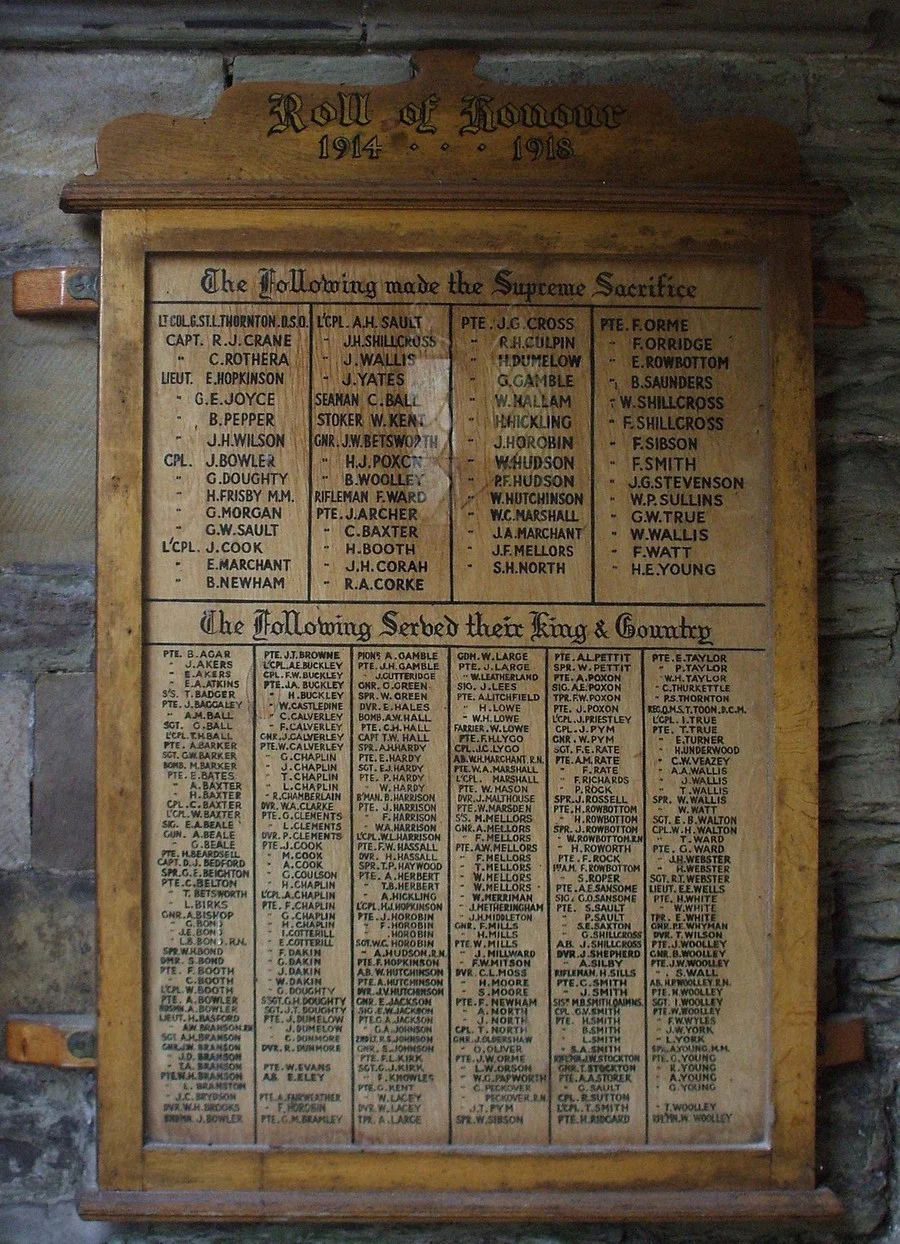 Roll of Honour
1914 · · · 1918
The Following made the Supreme Sacrifice
LT COL.G.ST.L.THORNTON.D.S.O.
CAPT. R.J.CRANE
" C.ROTHERA
LIEUT. E.HOPKINSON
" G.E.JOYCE
" B.PEPPER
" J.H.WILSON
CPL. J.BOWLER
" G.DOUGHTY
" H.FRISBY M.M.
" G.MORGAN
" G.W.SAULT
L'CPL. J.COOK
" E.MARCHANT
" B.NEWHAM
L'CPL. A.H. SAULT
" J.H.SHILLCROSS
" J.WALLIS
" J.YATES
SEAMAN C.BALL
STOKER W.KENT
GNR.J.W.BETSWORTH
" H.J.POXON
" B.WOOLLEY
RIFLEMAN F.WARD
PTE.J.ARCHER
" C.BAXTER
" H.BOOTH
" J.H.CORAH
" R.A.CORKE
PTE.J.G.CROSS
" R.H.CULPIN
" H.DUMELOW
" G.GAMBLE
" W.HALLAM
" H.HICKLING
" J.HOROBIN
" W.HUDSON
" P.F.HUDSON
" W.HUTCHINSON
" W.C.MARSHALL
" J.A.MARCHANT
" J.F.MELLORS
" S.H.NORTH
PTE.F.ORME
" F.ORRIDGE
" E.ROWBOTTOM
" B.SAUNDERS
" W.SHILLCROSS
" F.SHILLCROSS
" F.SIBSON
" F.SMITH
" J.G.STEVENSON
" W.P.SULLINS
" G.W.TRUE
" W.WALLIS
" F.WATT
" H.E.YOUNG
The Following Served their King & Country
PTE. B.AGAR
" J.AKERS
" E.AKERS
" E.A.ATKINS
S'S. T.BADGER
PTE. J.BAGGALEY
" A.M.BALL
SGT. G.BALL
L'CPL.T.H.BALL
PTE. A.BARKER
SGT. G.W.BARKER
BOMB. M.BARKER
PTE. E.BATES
" A.BAXTER
" H.BAXTER
CPL. C.BAXTER
L'CPL. W.BAXTER
SIG. E.A.BEALE
GUN. A.BEALE
" G.BEALE
PTE. H.BEARDSELL
CAPT. D.J.BEDFORD
SPR.G.E.BEIGHTON
PTE.C.BELTON
" T.BETSWORTH
" L.BIRKS
GNR.A.BISHOP
" G.BOND
" J.E.BOND
" L.B.BOND.R.N.
SPR.W.H.BOND
DMR. S.BOND
PTE. F.BOOTH
" C.BOOTH
L'CPL. W.BOOTH
PTE. A.BOWLER
A.BOWLER
LIEUT. H.BASFORD
" A.W.BRANSON.R.N
SGT A.H.BRANSON
GNR.J.W.BRANSON
" J.D. BRANSON
" T.A. BRANSON
PTE.W.H.BRANSON
" L. BRAMSTON
" J.C. BRYDON
DVR.W.H.BROOKS
J.BOWLER
PTE. J.T.BROWNE
L'CPL.A.E.BUCKLEY
CPL. F.W.BUCKLEY
PTE.J.A. BUCKLEY
" H.BUCKLEY
" W.CASTLEDINE
" C.CALVERLEY
" F.CALVERLEY
GNR.J.CALVERLEY
PTE.W.CALVERLEY
" G.CHAPLIN
" J.CHAPLIN
" T.CHAPLIN
" L.CHAPLIN
" R.CHAMBERLAIN
DVR. W.A.CLARKE
PTE.G.CLEMENTS
" L.CLEMENTS
DVR. P.CLEMENTS
PTE.J.COOK
" M.COOK
" A.COOK
" G.COULSON
" H.CHAPLIN
L'CPL.A.CHAPLIN
PTE. F.CHAPLIN
" G.CHAPLIN
" H.CHAPLIN
" I.COTTERILL
" E.COTTERILL
" F.DAKIN
" G.DAKIN
" J.DAKIN
" W.DAKIN
" G.DOUGHTY
S'SGT.G.H.DOUGHTY
SGT.J.T.DOUGHTY
PTE.J.DUMELOW
" J.DUMELOW
" C.DUNMORE
DVR. R.DUNMORE
PTE.W.EVANS
A.B. E.ELEY
PTE.A.FAIRWEATHER
" F.HOROBIN
PTE.G.M.BRAMLEY
PION'R A.GAMBLE
PTE. J.H.GAMBLE
" J.GUTTERIDGE
GNR. G.GREEN
SPR. W.GREEN
DVR. E.HALES
BOMB.A.W.HALL
PTE. C.H.HALL
CAPT T.W.HALL
SPR. A.J.HARDY
PTE. E.HARDY
SGT. E.J.HARDY
PTE. P.HARDY
" W.HARDY
B'MAN. B.HARRISON
PTE. J.HARRISON
" F.HARRISON
" W.A.HARRISON
L'CPL.W.L.HARRISON
PTE. F.W.HASSALL
DVR. H.HASSALL
SPR.T.P.HAYWOOD
PTE. A.HERBERT
" T.B.HERBERT
" A.HICKLING
L'CPL.H.J.HOPKINSON
PTE. J.HOROBIN
" F.HOROBIN
" HOROBIN
SGT.W.C. HOROBIN
" A.HUDSON.R.N.
PTE.F.HOPKINSON
A.B.W.HUTCHINSON
PTE.A.HUTCHINSON
DVR.J.V.HUTCHINSON
GNR. E.JACKSON
SIG. E.W.JACKSON
PTE.C.A.JACKSON
" G.A.JOHNSON
R.JOHNSON
GNR. S.JOHNSON
PTE. F.L.KIRK
SGT.G.J.KIRK
" F.KNOWLES
PTE.G.KENT
" W.LACEY
DVR. W.LACEY
TPR. A.LARGE
GDM. W.LARGE
PTE. J.LARGE
" W.LEATHERLAND
SIG. J.LEES
PTE.A.LITCHFIELD
" H.LOWE
" W.H.LOWE
FARRIER. W.LOWE
PTE.F.H.LYGO
CPL.J.C.LYGO
AB.W.H.MARCHANT.R.N.
PTE.W.A.MARSHALL
L'CPL. MARSHALL
PTE. W. MASON
DVR.J.MALTHOUSE
PTE.W.MARSDEN
S'S. M.MELLORS
GNR.A.MELLORS
" F.MELLORS
PTE.A.W.MELLORS
" F.MELLORS
" T.MELLORS
" W.MELLORS
" W.MELLORS
" W.MERRIMAN
" J.METHERINGHAM
" J.H.MIDDLETON
GNR. F.MILLS
" H.MILLS
PTE. W.MILLS
" J.MILLWARD
" F.W.MITSON
DVR. C.L.MOSS
" H.MOORE
" S.MOORE
PTE. F. NEWHAM
" A.NORTH
" J.NORTH
CPL. T.NORTH
GNR.J.OLDERSHAW
" O.OLIVER
PTE.J.W.ORME
" L.W.ORSON
" W.G.PAPWORTH
" C.PECKOVER
" PECKOVER.R.N.
" J.T.PYM
SPR.W.SIBSON
PTE. A.L.PETTIT
SPR. W.PETTIT
PTE. A.POXON
SIG. A.E.POXON
TPR. F.W.POXON
PTE. J.POXON
L'CPL.J.PRIESTLEY
CPL. J.PYM
GNR. W.PYM
SGT. F.E.RATE
PTE.A.M.RATE
" F.RATE
" F.RICHARDS
" P.ROCK
SPR.J.ROSSELL
PTE.H.ROWBOTTOM
" H.ROWBOTTOM
SPR. J.ROWBOTTOM
" W.ROWBOTTOM.R.N
" H.ROWORTH
PTE. F.ROCK
F.ROWBOTTOM
" S.ROPER
PTE.A.E.SANSOME
SIG. G.O.SANSOME
PTE. S.SAULT
" P.SAULT
" S.E.SAXTON
" G.SHILLCROSS
A.B. J.SHILLCROSS
DVR.J.SHEPHERD
" A.SILBY
RIFLEMAN. H.SILLS
PTE.C.SMITH
" J.SMITH
M.B.SMITH
CPL.G.V.SMITH
PTE. H.SMITH
" B.SMITH
" L.SMITH
" S.A.SMITH
J.W.STOCKTON
GNR.T.STOCKTON
PTE.A.A.STORER
" G.SAULT
CPL. R.SUTTON
L'CPL. T.SMITH
PTE.H.RIDGARD
PTE. E.TAYLOR
" P.TAYLOR
" W.H.TAYLOR
" C.THURKETTLE
" P.S.THORNTON
REG.Q.M.S.T.TOON.D.C.M.
L'CPL. I.TRUE
PTE. T.TRUE
" E.TURNER
" H.UNDERWOOD
" C.W.VEAZEY
" A.A.WALLIS
" J.WALLIS
" T.WALLIS
SPR. W.WALLIS
" W.WATT
SGT. E.B.WALTON
CPL.W.H.WALTON
" T.WARD
PTE. G.WARD
" J.H.WEBSTER
" H.WEBSTER
SGT. R.T.WEBSTER
LIEUT. E.E.WELLS
PTE. H.WHITE
" W.WHITE
TPR. E.WHITE
GNR.P.E.WHYMAN
DVR. T.WILSON
PTE.J.WOOLLEY
GNR.B.WOOLLEY
PTE.J.W.WOOLLEY
" S.WALL
AB. H.P.WOOLLEY.R.N.
PTE.H.WOOLLEY
SGT. I.WOOLLEY
PTE.W.WOOLLEY
" F.W.WYLES
" J.W.YORK
" L.YORK
A.YOUNG.M.M.
PTE.G.YOUNG
" R.YOUNG
" A.YOUNG
" G.YOUNG
" T.WOOLLEY
W.WOOLLEY